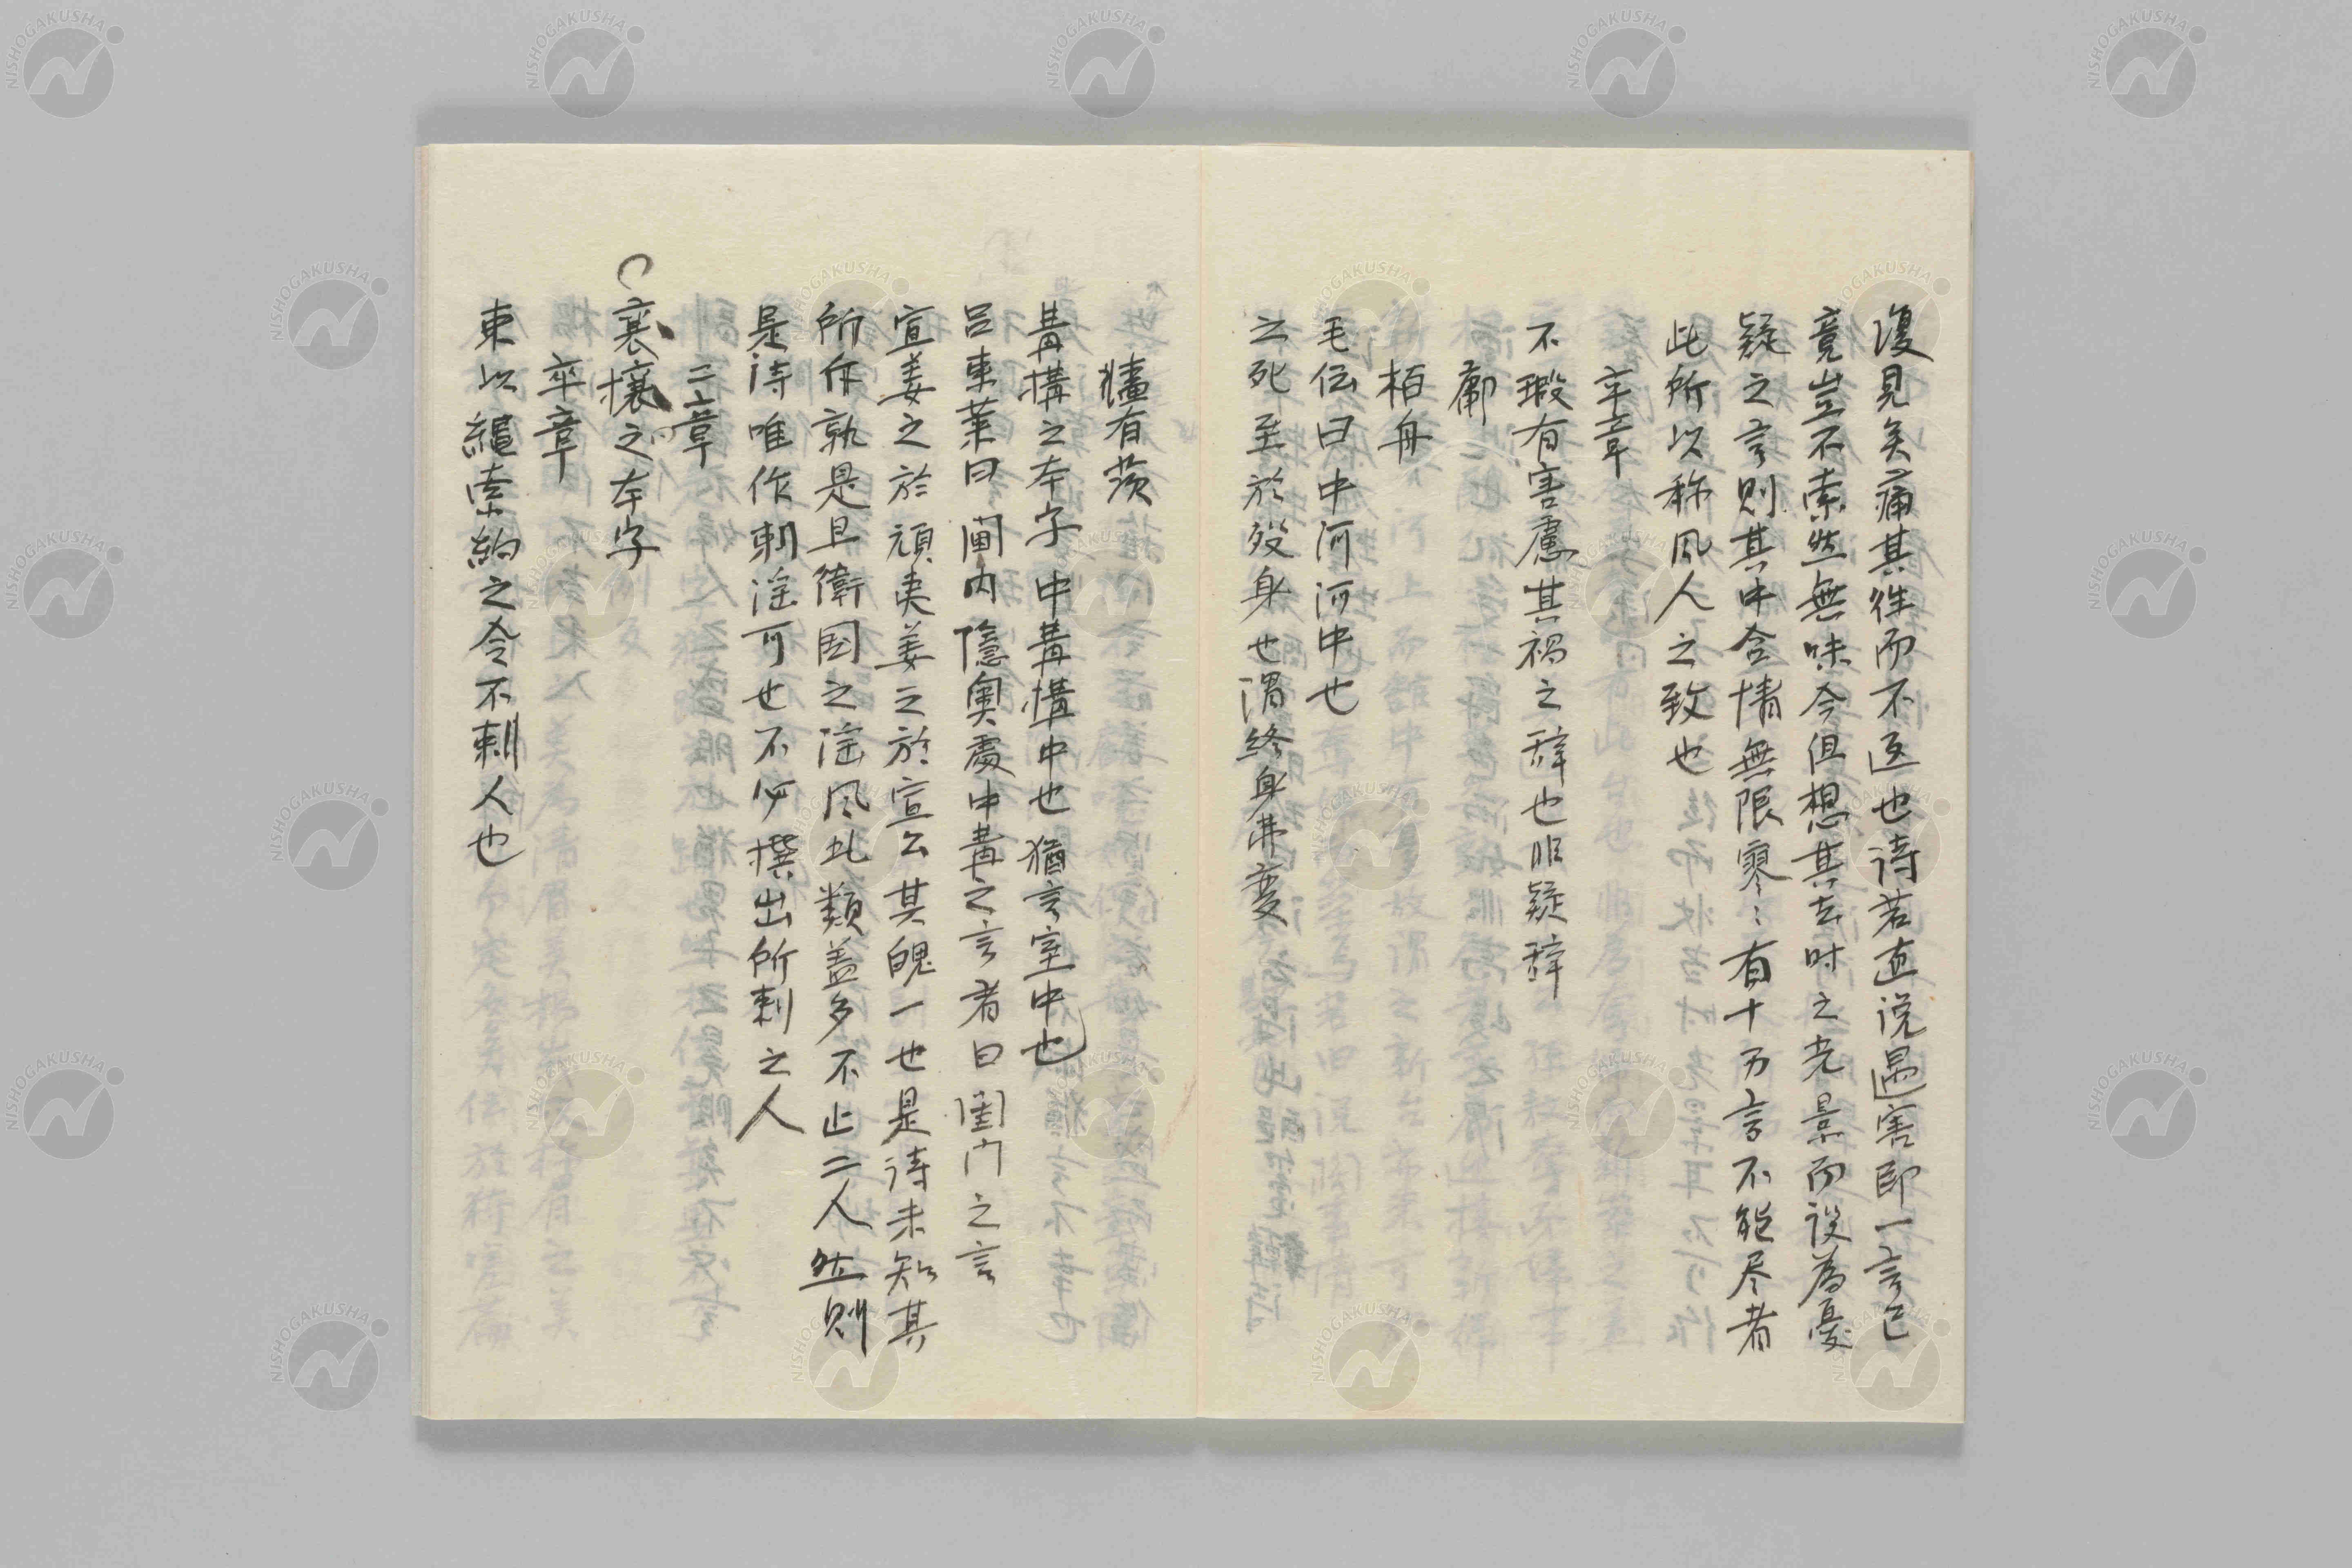 復見矣痛其徃而不返也詩若直説遇害即一言已
竟豈不索然無味今但想其去时之光景而設為憂
疑之言則其中含情無限寥〻有十万言不能尽者
此所以称風人之致也
卒章
不瑕有害慮其禍之辞也非疑辞
鄘
柏舟
毛伝曰中河河中也
之死至於歿身也謂終身弗変
牆有茨
冓構之本字中冓構中也猶言室中也
呂東莱曰閫内隠奥處中冓之言者曰閨门之言
宣姜之於頑夷姜之於宣公其醜一也是詩未知其
所斥孰是且衛国之淫風此類盖多不止二人然則
是詩唯作刺淫可也不必撰出所刺之人
二章
襄攘之本字
卒章
束以縄索約之令不刺人也
NISHOGAKUSHA